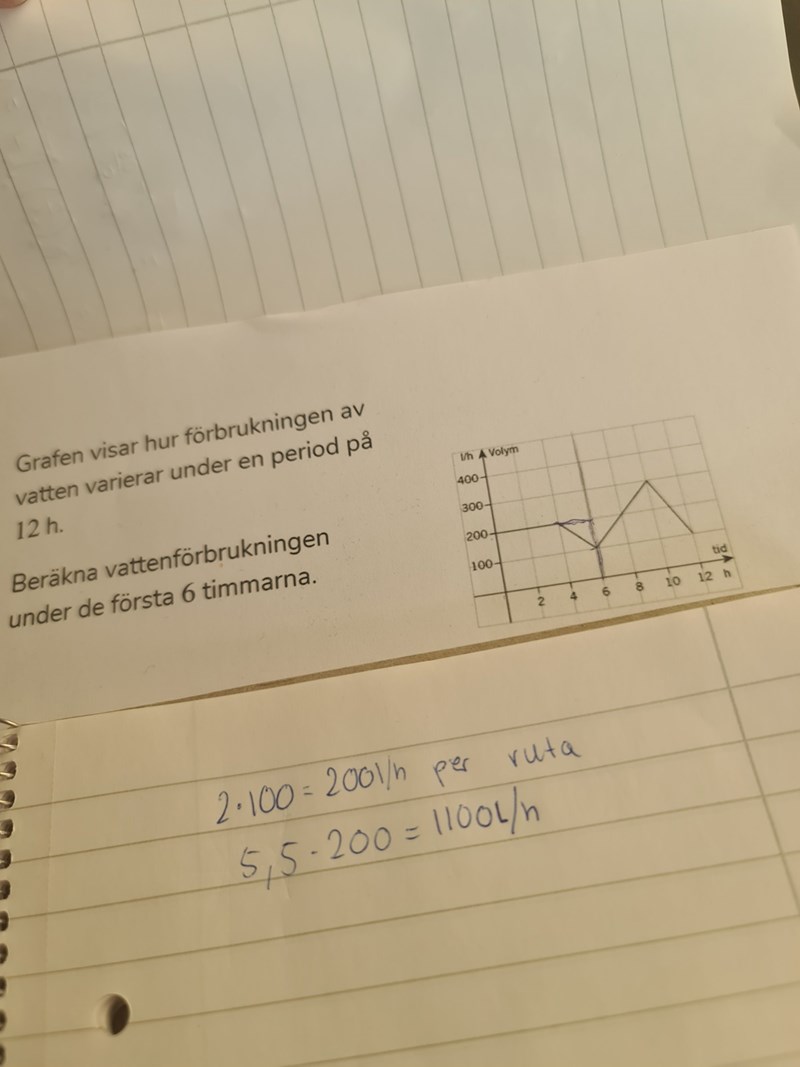 Grafen visar hur förbrukningen av
vatten varierar under en period på
12 h.
Beräkna vattenförbrukningen
under de första 6 timmarna.
l/h Volym
400
300
200
100
tid
2 4 6 8 10 12 h
2·100 = 200l/h per ruta
5,5 · 200 = 1100L/h